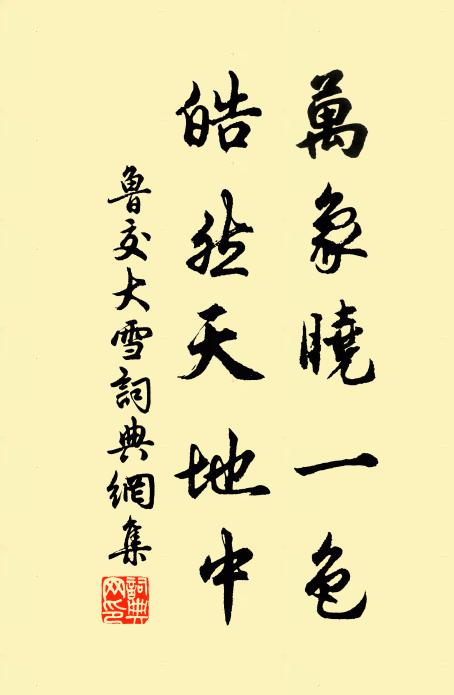 萬象曉一色
皓然天地中
魯交大雪詞典網集
詞典網印